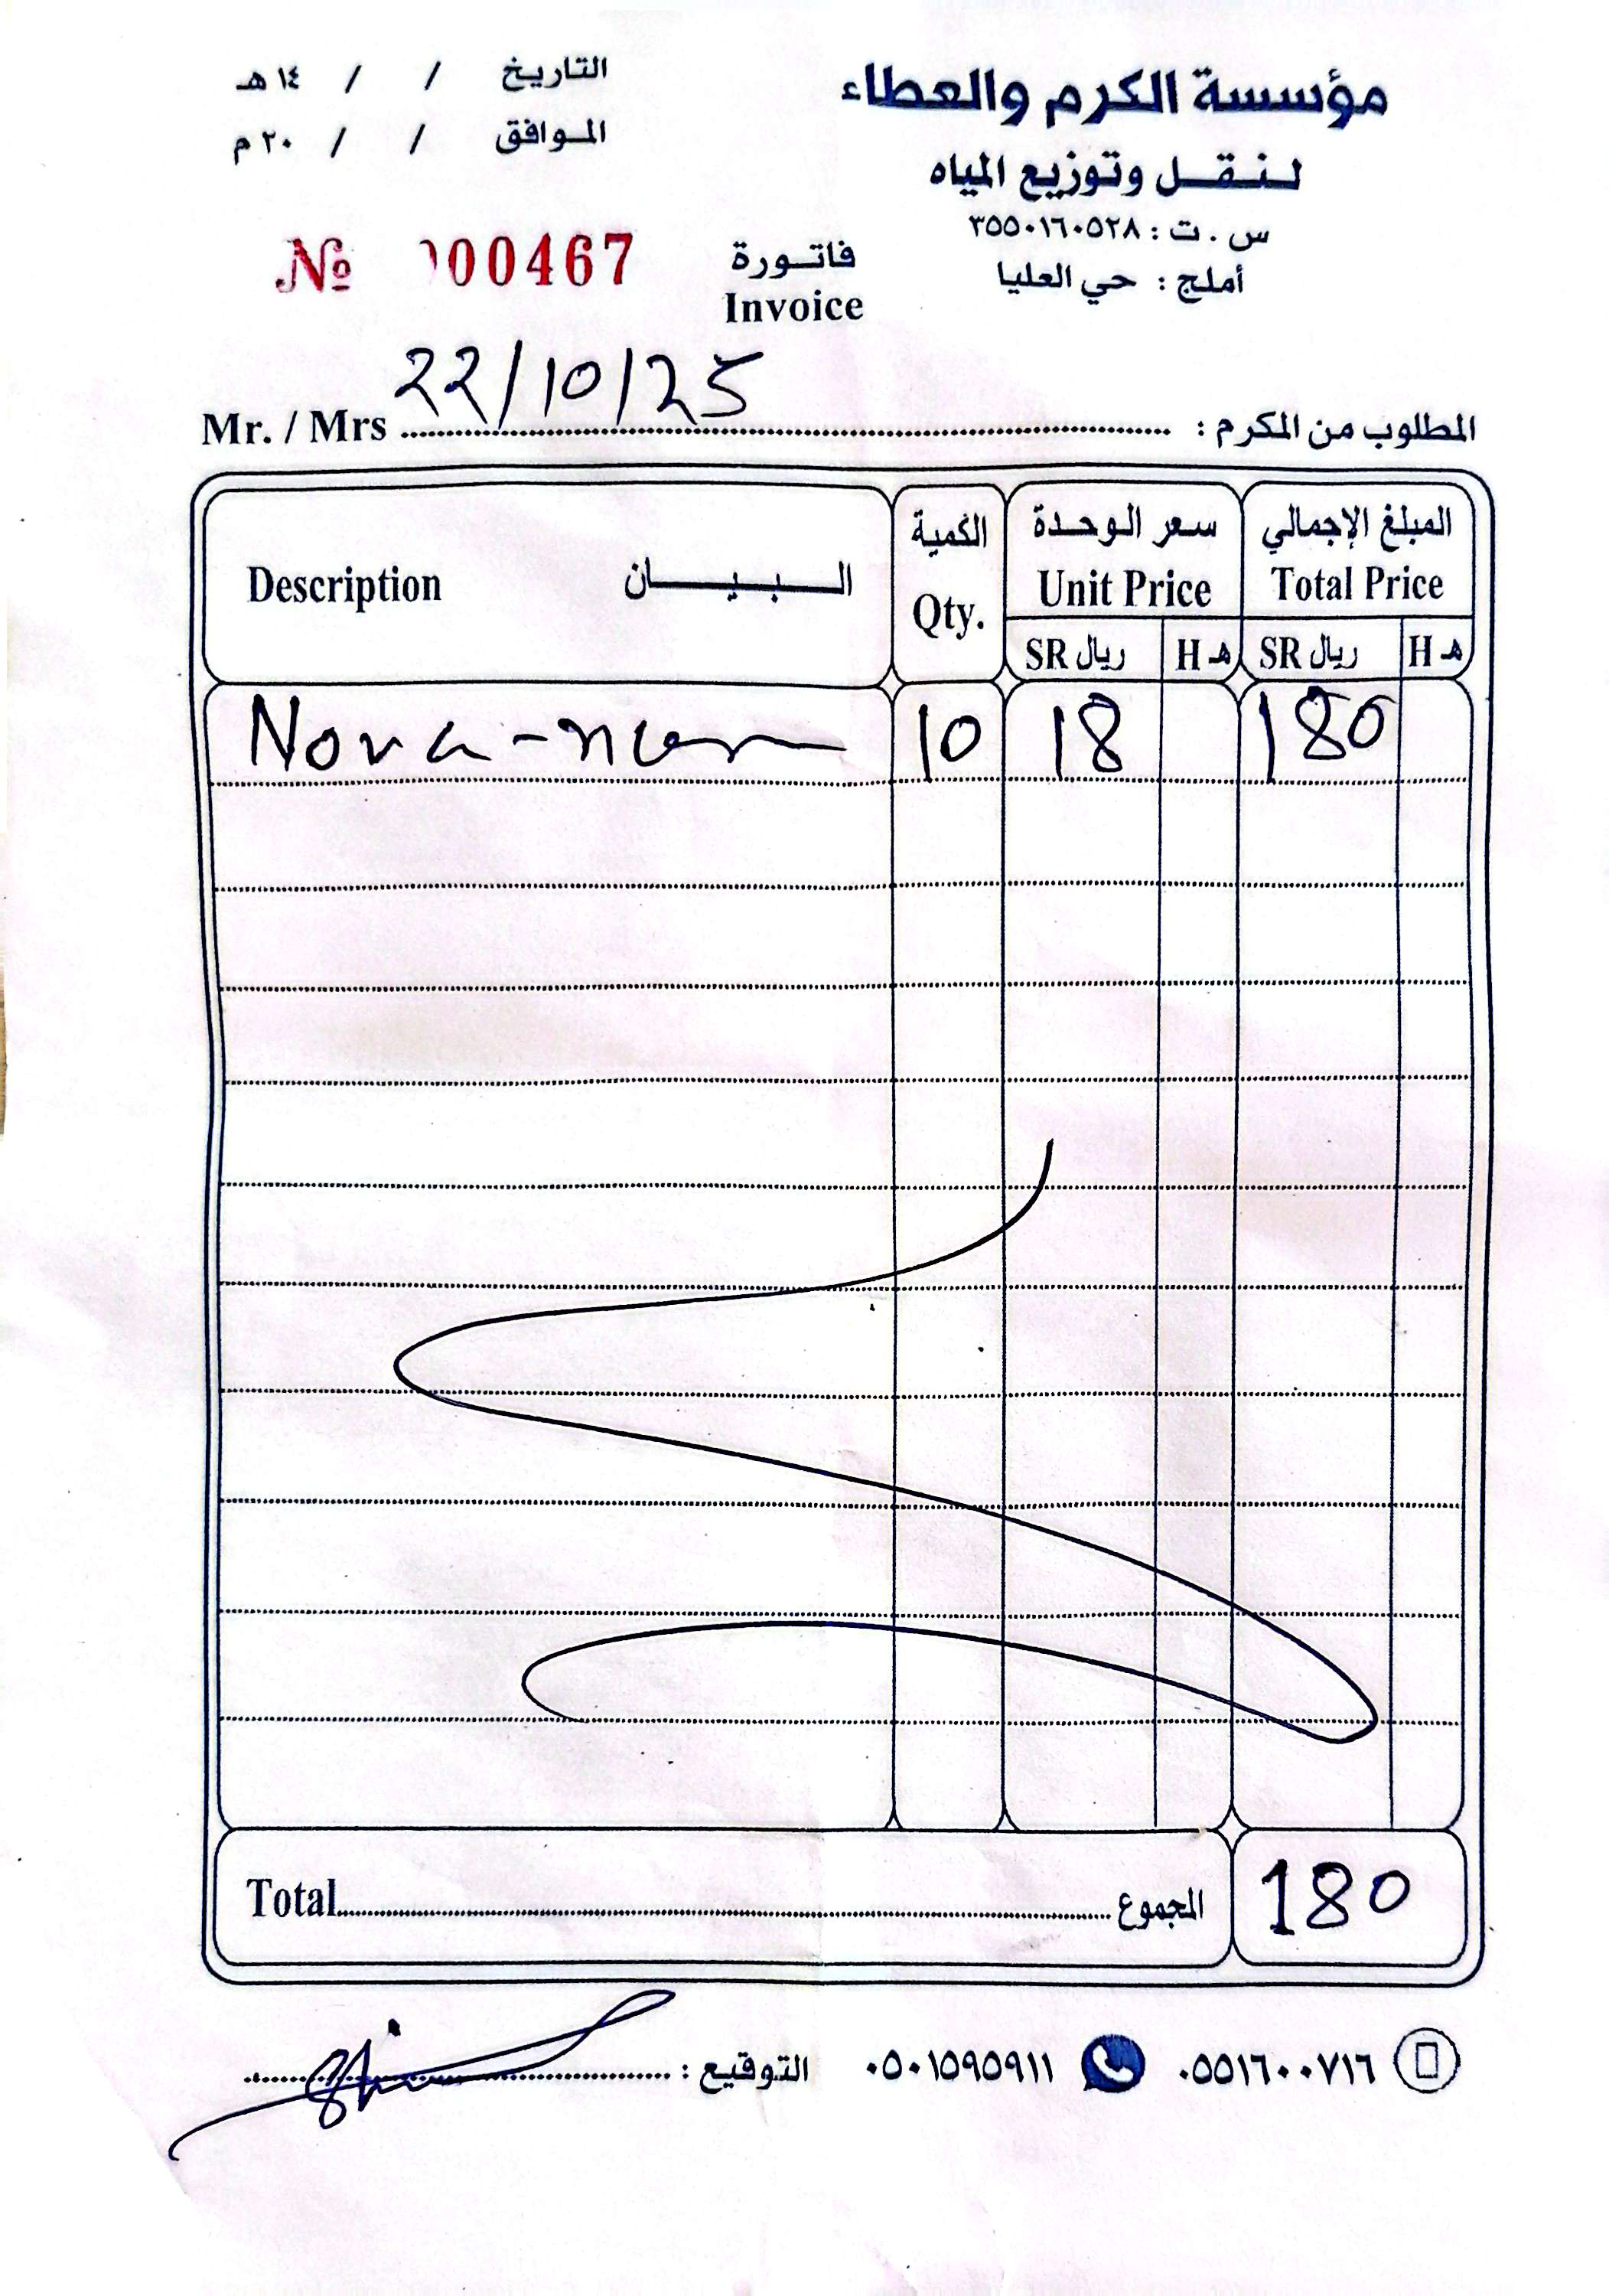 مؤسسة الكرم والعطاء
لنقل وتوزيع المياه
س . ت : ٣٥٥٠١٦٠٥٢٨
أملج : حي العليا
التاريخ / / ١٤ هـ
الموافق / / ٢٠ م
فاتورة
Invoice
№ 000467
22/10/25
Mr. / Mrs المطلوب من المكرم :
Description البيان الكمية Qty. سعر الوحدة Unit Price المبلغ الإجمالي Total Price
SR ريال H هـ SR ريال H هـ
Nova - 10 18 180
Total المجموع 180
٠٥٥١٦٠٠٧١٦ ٠٥٠١٥٩٥٩١١ التوقيع :